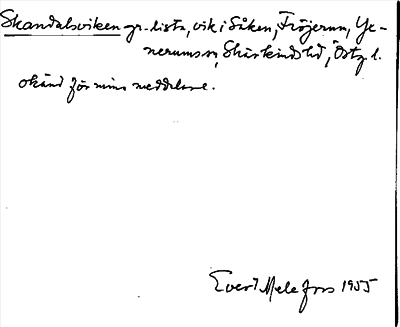 Skandalsviken gr. lista, vik i Såken, Fröjerum, Ye-
nerums sn, Skärkinds hd, Östg l.
okänd för mina meddelare.
Evert Melefors 1955